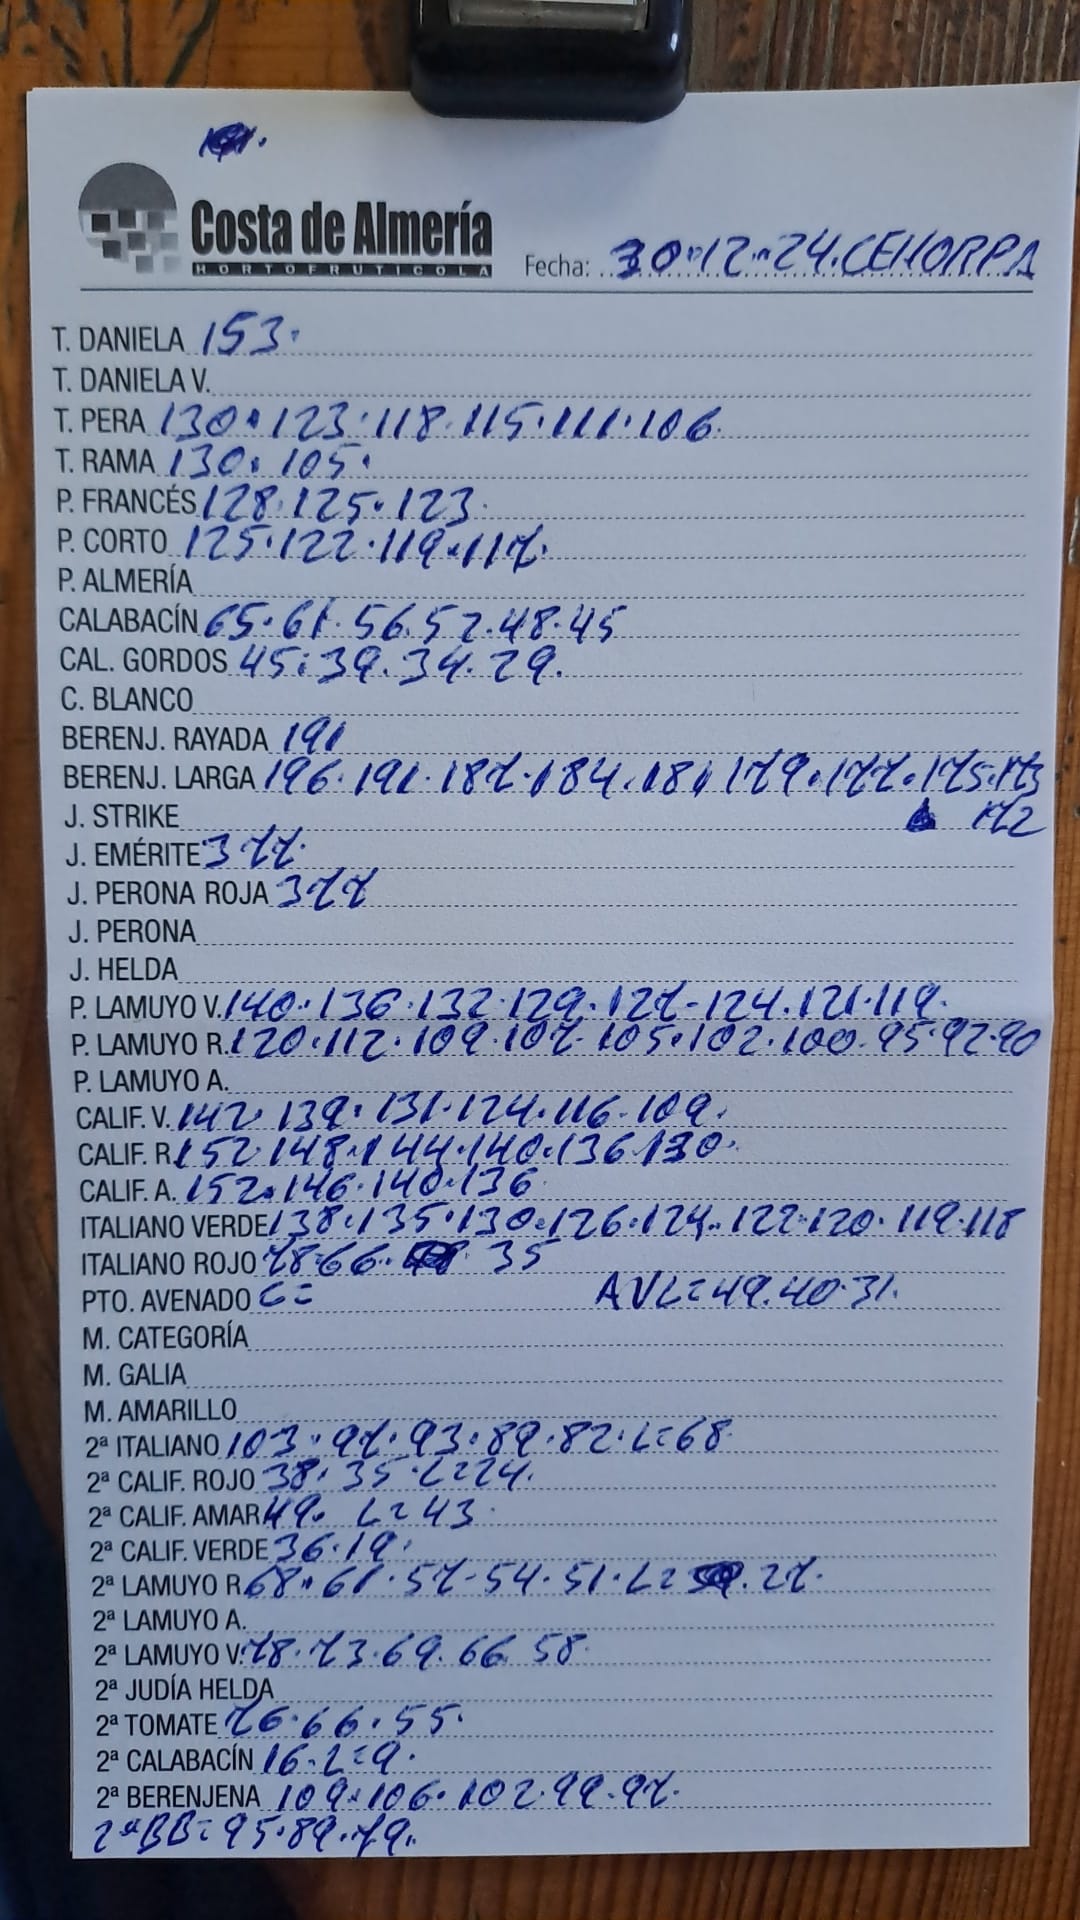 Costa de Almería
HORTOFRUTICOLA
Fecha: 30·12·24·CEHORPA
T. DANIELA 153·
T. DANIELA V.
T. PERA 130·123·118·115·111·106·
T. RAMA 130·105·
P. FRANCÉS 128·125·123·
P. CORTO 125·122·119·117·
P. ALMERÍA
CALABACÍN 65·61·56·52·48·45
CAL. GORDOS 45·39·34·29·
C. BLANCO
BERENJ. RAYADA 191
BERENJ. LARGA 196·191·187·184·181·179·177·175·173
172
J. STRIKE
J. EMÉRITE 377·
J. PERONA ROJA 377
J. PERONA
J. HELDA
P. LAMUYO V. 140·136·132·129·127-124·121·119·
P. LAMUYO R. 120·112·109·107·105·102·100·95·92·90
P. LAMUYO A.
CALIF. V. 142·139·131·124·116·109·
CALIF. R. 152·148·144·140·136·130·
CALIF. A. 152·146·140·136·
ITALIANO VERDE 138·135·130·126·124·122·120·119·118
ITALIANO ROJO 78·66· 35
PTO. AVENADO C= AVL=49·40·31·
M. CATEGORÍA
M. GALIA
M. AMARILLO
2ª ITALIANO 103·97·93·89·82·L=68·
2ª CALIF. ROJO 38·35·L=24·
2ª CALIF. AMAR 49· L=43·
2ª CALIF. VERDE 36·19·
2ª LAMUYO R. 68·61·57-54·51·L= 27·
2ª LAMUYO A.
2ª LAMUYO V. 78·73·69·66·58·
2ª JUDÍA HELDA
2ª TOMATE 76·66·55·
2ª CALABACÍN 16·L=9·
2ª BERENJENA 109·106·102·99·97·
2ªBB=95·89·79·